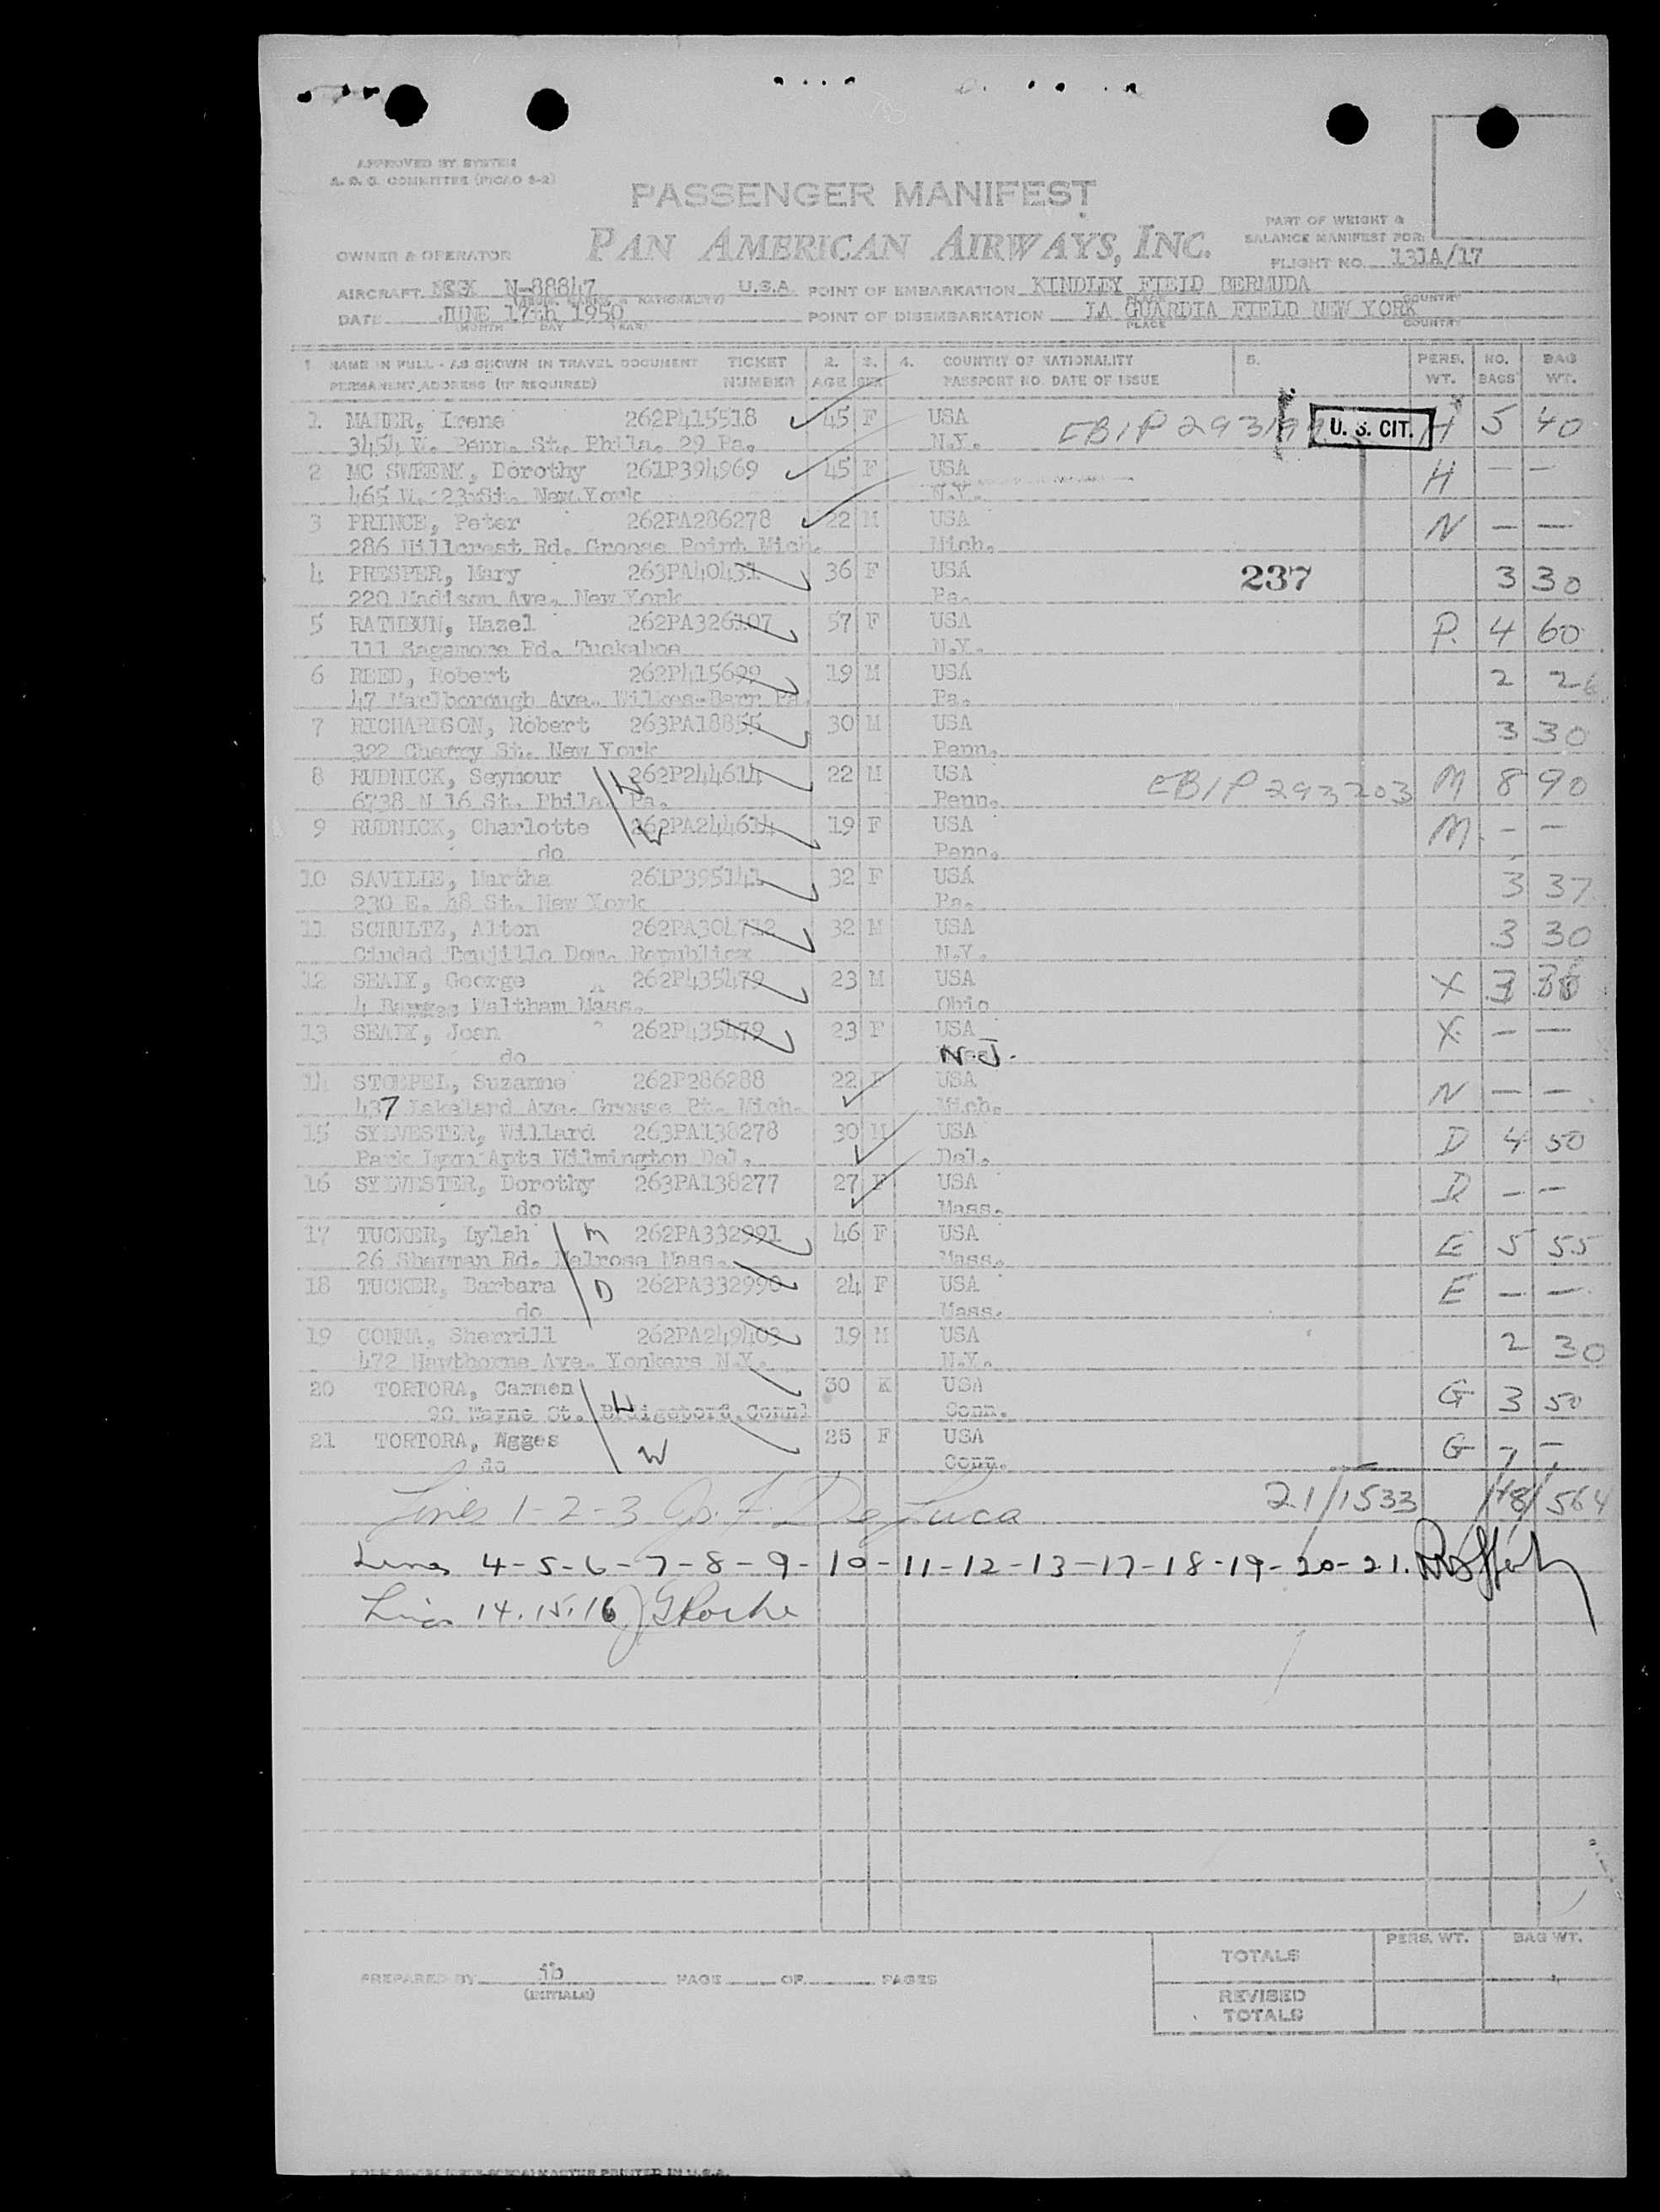 APPROVED BY SYSTEM
A. O. G. COMMITTEE (PICAO 8-2)
PASSENGER MANIFEST
PAN AMERICAN AIRWAYS, INC.
PART OF WEIGHT &
BALANCE MANIFEST FOR:
OWNER & OPERATOR
FLIGHT NO. 131A/17
AIRCRAFT N-88847 U.S.A. POINT OF EMBARKATION KINDLEY FIELD BERMUDA
PLACE COUNTRY
DATE JUNE 17th 1950 POINT OF DISEMBARKATION LA GUARDIA FIELD NEW YORK
MONTH DAY YEAR PLACE COUNTRY
1 NAME IN FULL - AS SHOWN IN TRAVEL DOCUMENT TICKET 2. 3. 4. COUNTRY OF NATIONALITY 5. PERS. NO. BAG
PERMANENT ADDRESS (IF REQUIRED) NUMBER AGE SEX PASSPORT NO. DATE OF ISSUE WT. BAGS WT.
1 MAHER, Irene 262P415518 45 F USA U. S. CIT. H 5 40
3454 W. Penn. St. Phila. 29 Pa. N.Y. EB/P
2 MC SWEENY, Dorothy 261P394969 45 F USA H - -
465 W. 23 St. New York N.Y.
3 PRINCE, Peter 262PA286278 22 M USA N - -
286 Hillcrest Rd. Grosse Point Mich. Mich.
4 PRESPER, Mary 263PA40431 36 F USA 237 3 30
220 Madison Ave. New York Pa.
5 RATHBUN, Hazel 262PA326107 57 F USA P. 4 60
111 Sagamore Rd. Tuckahoe N.Y.
6 REED, Robert 262P415699 19 M USA 2 26
47 Marlborough Ave. Wilkes-Barr Pa. Pa.
7 RICHARDSON, Robert 263PA18855 30 M USA 3 30
322 Cherry St. New York Penn.
8 RUDNICK, Seymour H 262P244614 22 M USA EB/P 293203 M 8 90
6738 N 16 St. Phila. Pa. Penn.
9 RUDNICK, Charlotte W 262PA244614 19 F USA M - -
do Penn.
10 SAVILLE, Martha 261P395141 32 F USA 3 37
230 E. 48 St. New York Pa.
11 SCHULTZ, Alton 262PA304712 32 M USA 3 30
Ciudad Trujillo Dom. Republica N.Y.
12 SEALY, George 262P435479 23 M USA X 3 38
4 Waltham Mass. Ohio
13 SEALY, Joan 262P435479 23 F USA X - -
do N.J.
14 STOEPEL, Suzanne 262P286288 22 F USA N - -
437 Lakeland Ave. Grosse Pt. Mich. Mich.
15 SYLVESTER, Willard 263PA138278 30 M USA D 4 50
Park Lynn Apts Wilmington Del. Del.
16 SYLVESTER, Dorothy 263PA138277 27 F USA D - -
do Mass.
17 TUCKER, Lylah M 262PA332991 46 F USA E 5 55
26 Sherman Rd. Melrose Mass. Mass.
18 TUCKER, Barbara D 262PA332990 24 F USA E - -
do Mass.
19 CONNA, Sherrill 262PA249403 19 M USA 2 30
472 Hawthorne Ave. Yonkers N.Y. N.Y.
20 TORTORA, Carmen H 30 M USA G 3 50
90 Wayne St. Conn. Conn.
21 TORTORA, Agges W 25 F USA G - -
do Conn.
Lines 1-2-3 De Luca 21/1533 /48/564
Lines 4-5-6-7-8-9-10-11-12-13-17-18-19-20-21.
Lines 14.15.16 J G Roche
PREPARED BY jb PAGE OF PAGES
(INITIALS)
PERS. WT. BAG WT.
TOTALS
REVISED
TOTALS